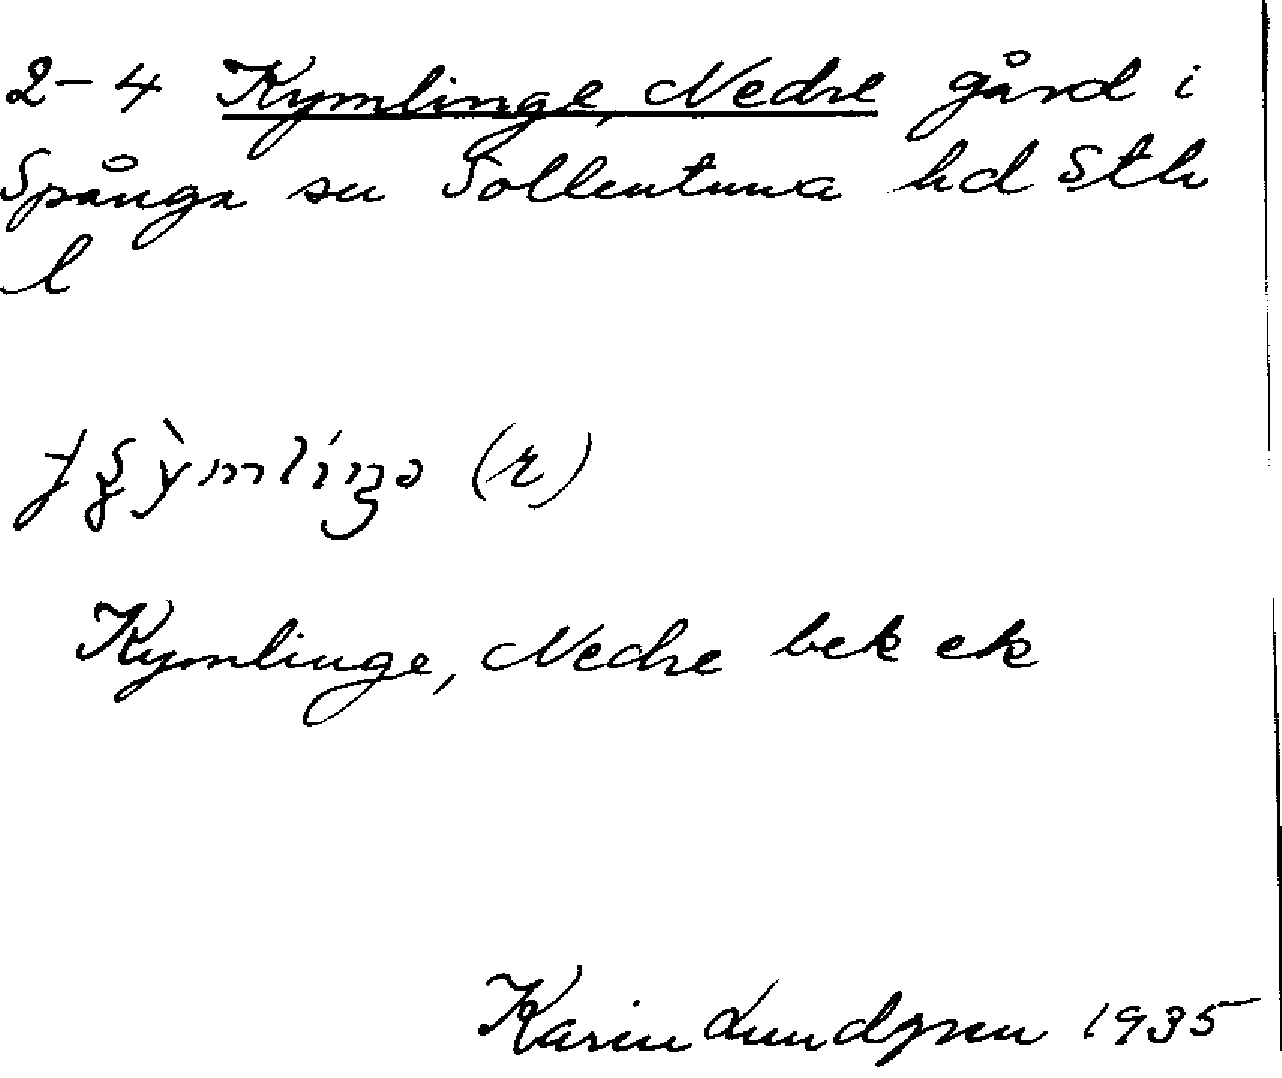 2-4 Kymlinge, Nedre gård i
Spånga sn Sollentuna hd Sth
l
(r)
Kymlinge, Nedre bek ek
Karin Lundgren 1935